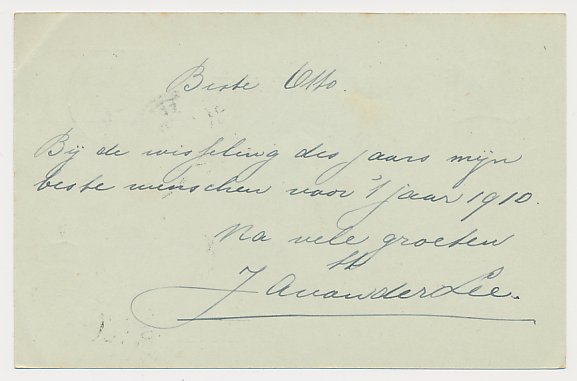 Beste Otto.
Bij de wisseling des jaars mijn
beste wenschen voor 't jaar 1910.
Na vele groeten
tt
J A van der Lee.